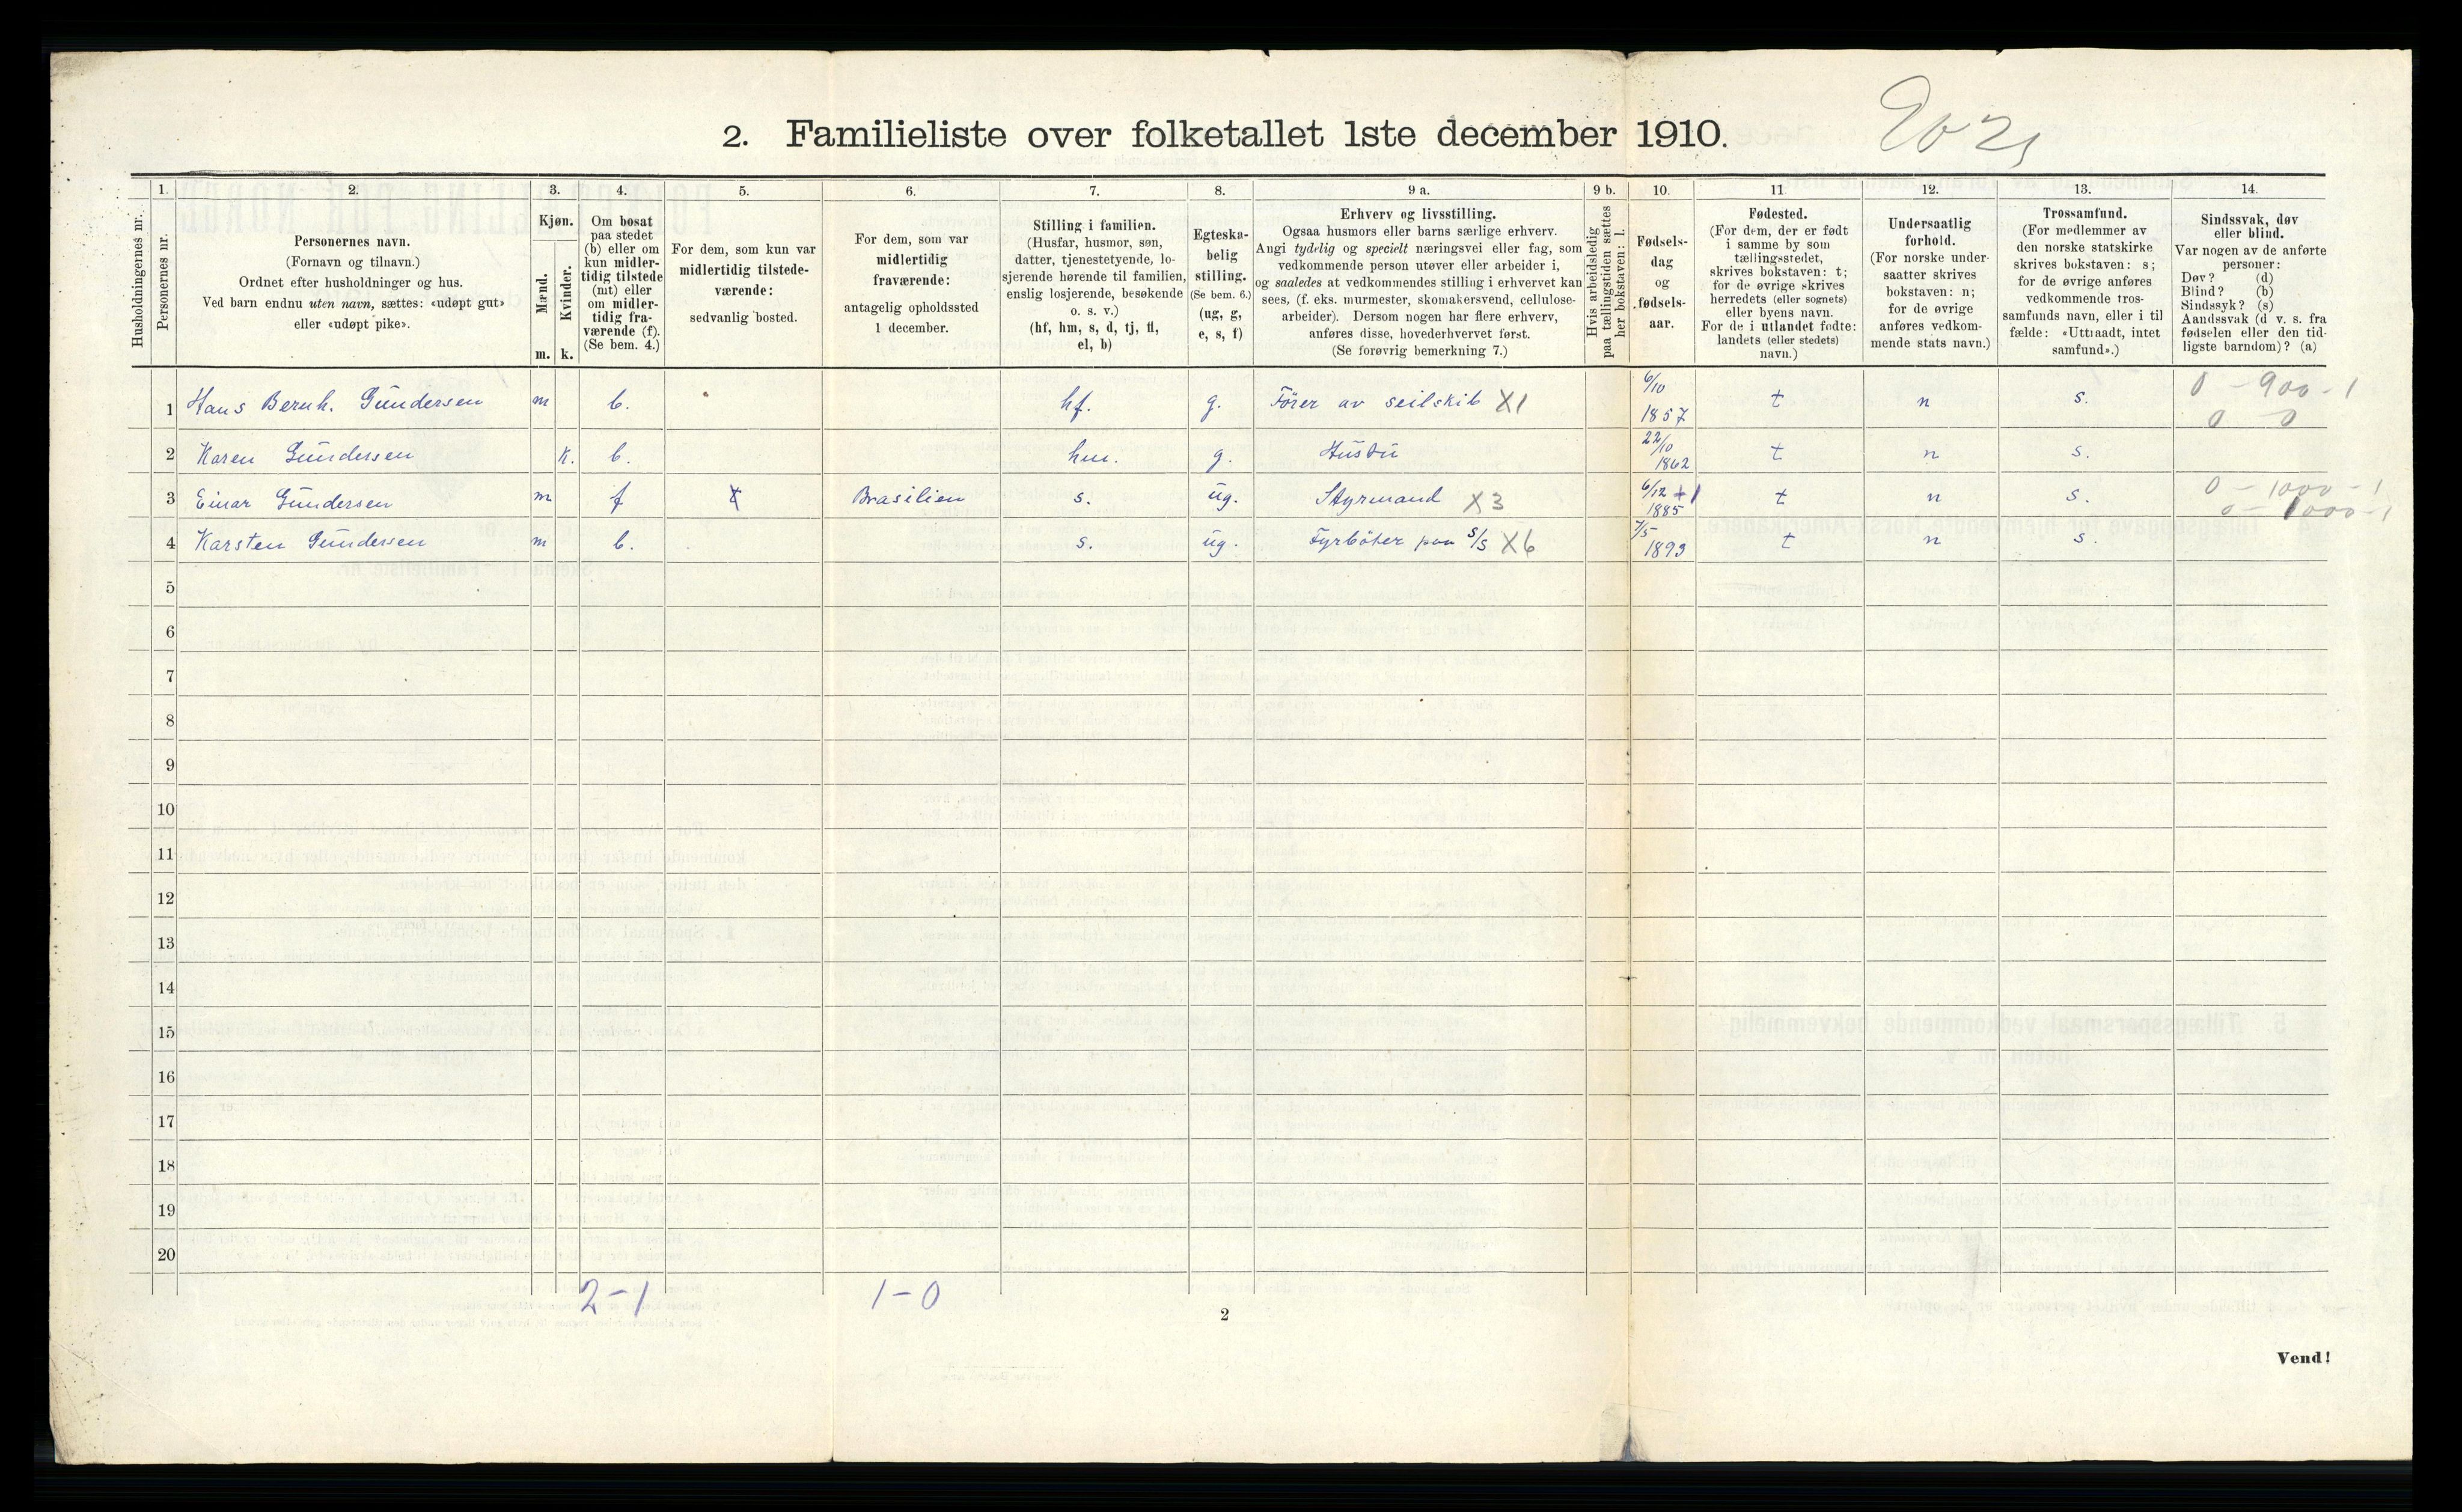 2. Familieliste over folketallet 1ste december 1910.
1. 2. 3. 4. 5. 6. 7. 8. 9 a. 9 b. 10. 11. 12. 13. 14.
Husholdningernes nr.
Personernes nr.
Personernes navn.
(Fornavn og tilnavn.)
Ordnet efter husholdninger og hus.
Ved barn endnu uten navn, sættes: «udøpt gut»
eller «udøpt pike».
Kjøn.
Mænd.
Kvinder.
m. k.
Om bosat
paa stedet
(b) eller om
kun midler-
tidig tilstede
(mt) eller
om midler-
tidig fra-
værende (f).
(Se bem. 4.)
For dem, som kun var
midlertidig tilstede-
værende:
sedvanlig bosted.
For dem, som var
midlertidig
fraværende:
antagelig opholdssted
1 december.
Stilling i familien.
(Husfar, husmor, søn,
datter, tjenestetyende, lo-
sjerende hørende til familien,
enslig losjerende, besøkende
o. s. v.)
(hf, hm, s, d, tj, fl,
el, b)
Egteska-
belig
stilling.
(Se bem. 6.)
(ug, g,
e, s, f)
Erhverv og livsstilling.
Ogsaa husmors eller barns særlige erhverv.
Angi tydelig og specielt næringsvei eller fag, som
vedkommende person utøver eller arbeider i,
og saaledes at vedkommendes stilling i erhvervet kan
sees, (f. eks. murmester, skomakersvend, cellulose-
arbeider). Dersom nogen har flere erhverv,
anføres disse, hovederhvervet først.
(Se forøvrig bemerkning 7.)
Hvis arbeidsledig
paa tællingstiden sættes
her bokstaven: l.
Fødsels-
dag
og
fødsels-
aar.
Fødested.
(For dem, der er født
i samme by som
tællingsstedet,
skrives bokstaven: t;
for de øvrige skrives
herredets (eller sognets)
eller byens navn.
For de i utlandet fødte:
landets (eller stedets)
navn.)
Undersaatlig
forhold.
(For norske under-
saatter skrives
bokstaven: n;
for de øvrige
anføres vedkom-
mende stats navn.)
Trossamfund.
(For medlemmer av
den norske statskirke
skrives bokstaven: s;
for de øvrige anføres
vedkommende tros-
samfunds navn, eller i til
fælde: «Uttraadt, intet
samfund».)
Sindssvak, døv
eller blind.
Var nogen av de anførte
personer:
Døv? (d)
Blind? (b)
Sindssyk? (s)
Aandssvak (d v. s. fra
fødselen eller den tid-
ligste barndom)? (a)
1 Hans Bernh. Gundersen m b. hf. g. Fører av seilskib X1 6/10 1857 t n s. 0 - 900 - 1
0 0
2 Karen Gundersen k. b. hm. g. Hustru 22/10 1862 t n s.
3 Einar Gundersen m f Brasilien s. ug. Styrmand X3 6/12 1885 t n s. 0 - 1000 - 1
0 - 1000 - 1
4 Karsten Gundersen m b. s. ug. Fyrbøter paa S/S X6 7/5 1893 t n s.
5
6
7
8
9
10
11
12
13
14
15
16
17
18
19
20
2-1 1-0
2
Vend!